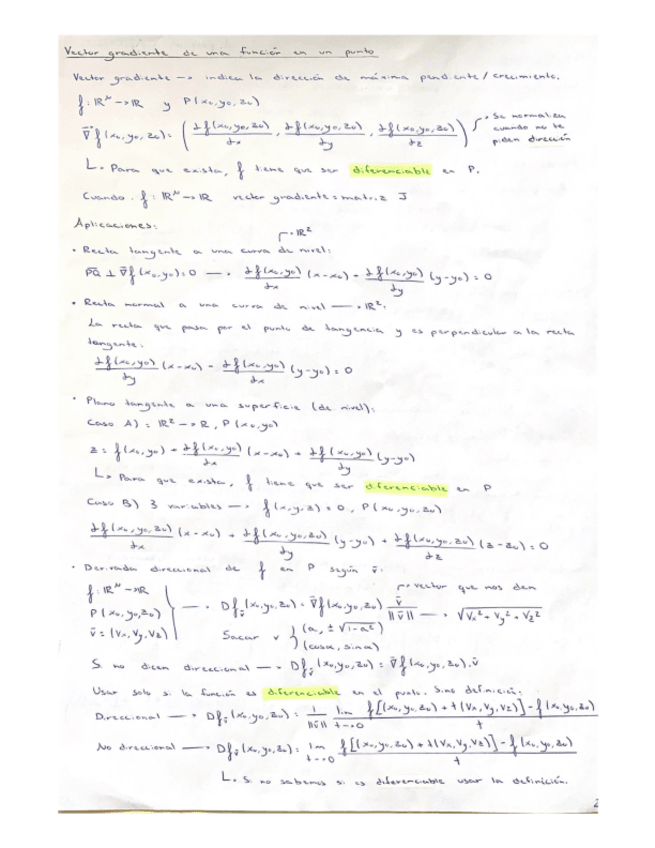 Vector gradiente de una función en un punto
Vector gradiente —> indica la dirección de máxima pendiente/crecimiento.
f: ℝᴺ —> ℝ y P(x₀, y₀, z₀)
∇̄f(x₀, y₀, z₀) = (∂f(x₀, y₀, z₀)/∂x, ∂f(x₀, y₀, z₀)/∂y, ∂f(x₀, y₀, z₀)/∂z) -> Se normaliza cuando no te piden dirección
L> Para que exista, f tiene que ser diferenciable en P.
Cuando f: ℝᴺ —> ℝ vector gradiente = matriz J
Aplicaciones:
-> ℝ²
· Recta tangente a una curva de nivel:
P̄Q̄ ⊥ ∇̄f(x₀, y₀) = 0 —> ∂f(x₀, y₀)/∂x (x-x₀) + ∂f(x₀, y₀)/∂y (y-y₀) = 0
· Recta normal a una curva de nivel —> ℝ².
La recta que pasa por el punto de tangencia y es perpendicular a la recta
tangente:
∂f(x₀, y₀)/∂y (x-x₀) - ∂f(x₀, y₀)/∂x (y-y₀) = 0
· Plano tangente a una superficie (de nivel):
Caso A) = ℝ² —> ℝ, P(x₀, y₀)
z = f(x₀, y₀) + ∂f(x₀, y₀)/∂x (x-x₀) + ∂f(x₀, y₀)/∂y (y-y₀)
L> Para que exista, f tiene que ser diferenciable en P
Caso B) 3 variables —> f(x, y, z) = 0, P(x₀, y₀, z₀)
∂f(x₀, y₀, z₀)/∂x (x-x₀) + ∂f(x₀, y₀, z₀)/∂y (y-y₀) + ∂f(x₀, y₀, z₀)/∂z (z-z₀) = 0
· Derivada direccional de f en P según v̄:
-> vector que nos den
f: ℝᴺ —> ℝ
P(x₀, y₀, z₀)
v̄ = (Vx, Vy, Vz)
—> Df_v̄(x₀, y₀, z₀) = ∇̄f(x₀, y₀, z₀) · v̄/||v̄|| —> √(Vx² + Vy² + Vz²)
Sacar v } (a, ±√(1-a²))
(cosα, sinα)
Si no dicen direccional —> Df_v̄(x₀, y₀, z₀) = ∇̄f(x₀, y₀, z₀) · v̄
Usar solo si la función es diferenciable en el punto. Sino definición:
Direccional —> Df_v̄(x₀, y₀, z₀) = 1/||v̄|| lim t->0 f[(x₀, y₀, z₀) + t(Vx, Vy, Vz)] - f(x₀, y₀, z₀)/t
No direccional —> Df_v̄(x₀, y₀, z₀) = lim t->0 f[(x₀, y₀, z₀) + t(Vx, Vy, Vz)] - f(x₀, y₀, z₀)/t
L> Si no sabemos si es diferenciable usar la definición.
2